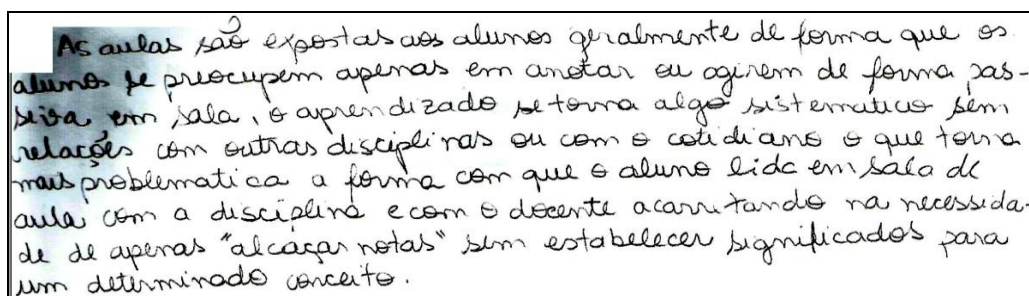 As aulas são expostas aos alunos geralmente de forma que os
alunos se preocupem apenas em anotar ou agirem de forma pas-
siva em sala, o aprendizado se torna algo sistematico sem
relações com outras disciplinas ou com o cotidiano o que torna
mais problematica a forma com que o aluno lida em sala de
aula com a disciplina e com o docente acarretando na necessida-
de de apenas "alcaçar notas" sem estabelecer significados para
um determinado conceito.